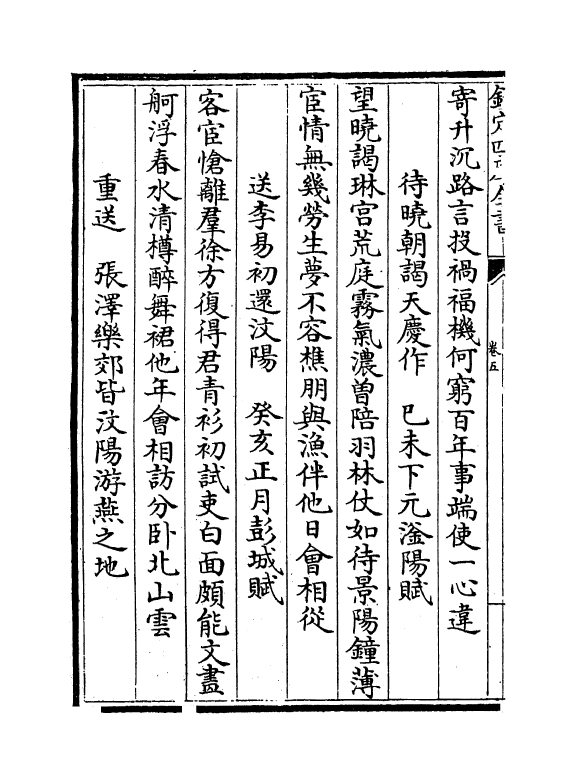 欽定四庫全書
卷五
寄升沉路言投禍福機何窮百年事端使一心違
待曉朝謁天慶作　己未下元滏陽賦
望曉謁琳宫荒庭霧氣濃曽陪羽林仗如待景陽鐘薄
宦情無幾勞生夢不容樵朋與漁伴他日會相從
送李易初還汶陽　癸亥正月彭城賦
客宦愴離羣徐方復得君青衫初試吏白面頗能文畫
舸浮春水清樽醉舞裙他年會相訪分卧北山雲
重送　張澤樂郊皆汶陽游燕之地